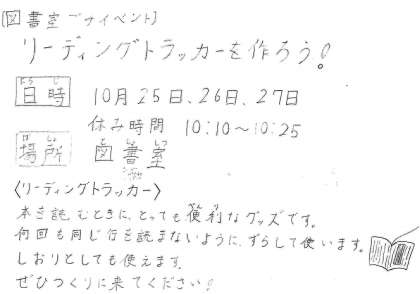 [図書室でのイベント]
リーディングトラッカーを作ろう!
日時 10月25日、26日、27日
休み時間 10:10〜10:25
場所 図書室
〈リーディングトラッカー〉
本を読むときに、とっても便利なグッズです。
何回も同じ行を読まないように、ずらして使います。
しおりとしても使えます。
ぜひつくりに来てください!